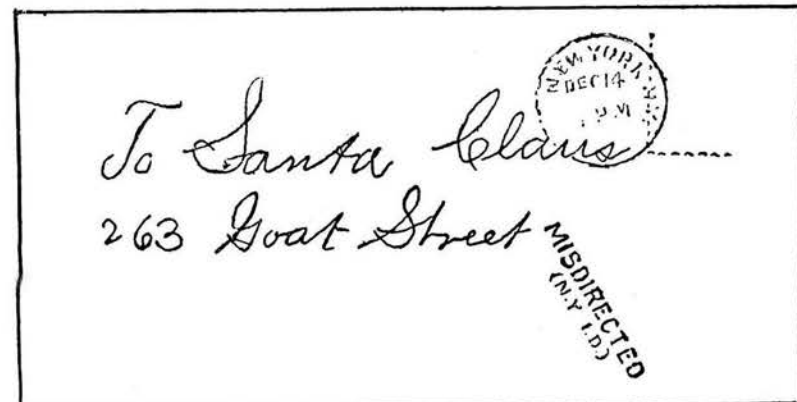 NEW YORK N.Y.
DEC 14
P M
To Santa Claus
263 Goat Street
MISDIRECTED
(N.Y. I.D.)